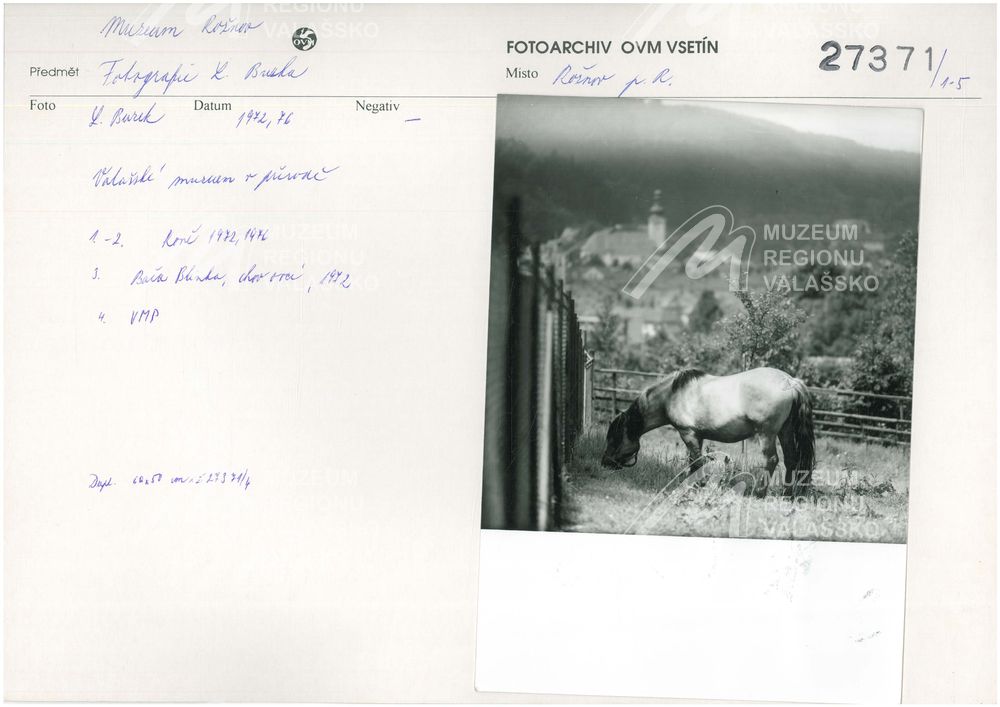 Muzeum Rožnov
OVM
FOTOARCHIV OVM VSETÍN
27371/1-5
Předmět Fotografie L. Buska
Místo Rožnov p. R.
Foto Datum Negativ
L. Burek 1972, 76 –
Valašské muzeum v přírodě
1.-2. Koně 1972, 1976
3. Bača Blinka, chov ovcí, 1972
4. VMP
Dupl. 60x50 cm 27371/4
MUZEUM
REGIONU
VALAŠSKO
MUZEUM
REGIONU
VALAŠSKO
MUZEUM
REGIONU
VALAŠSKO
MUZEUM
REGIONU
VALAŠSKO
MUZEUM
REGIONU
VALAŠSKO
MUZEUM
REGIONU
VALAŠSKO